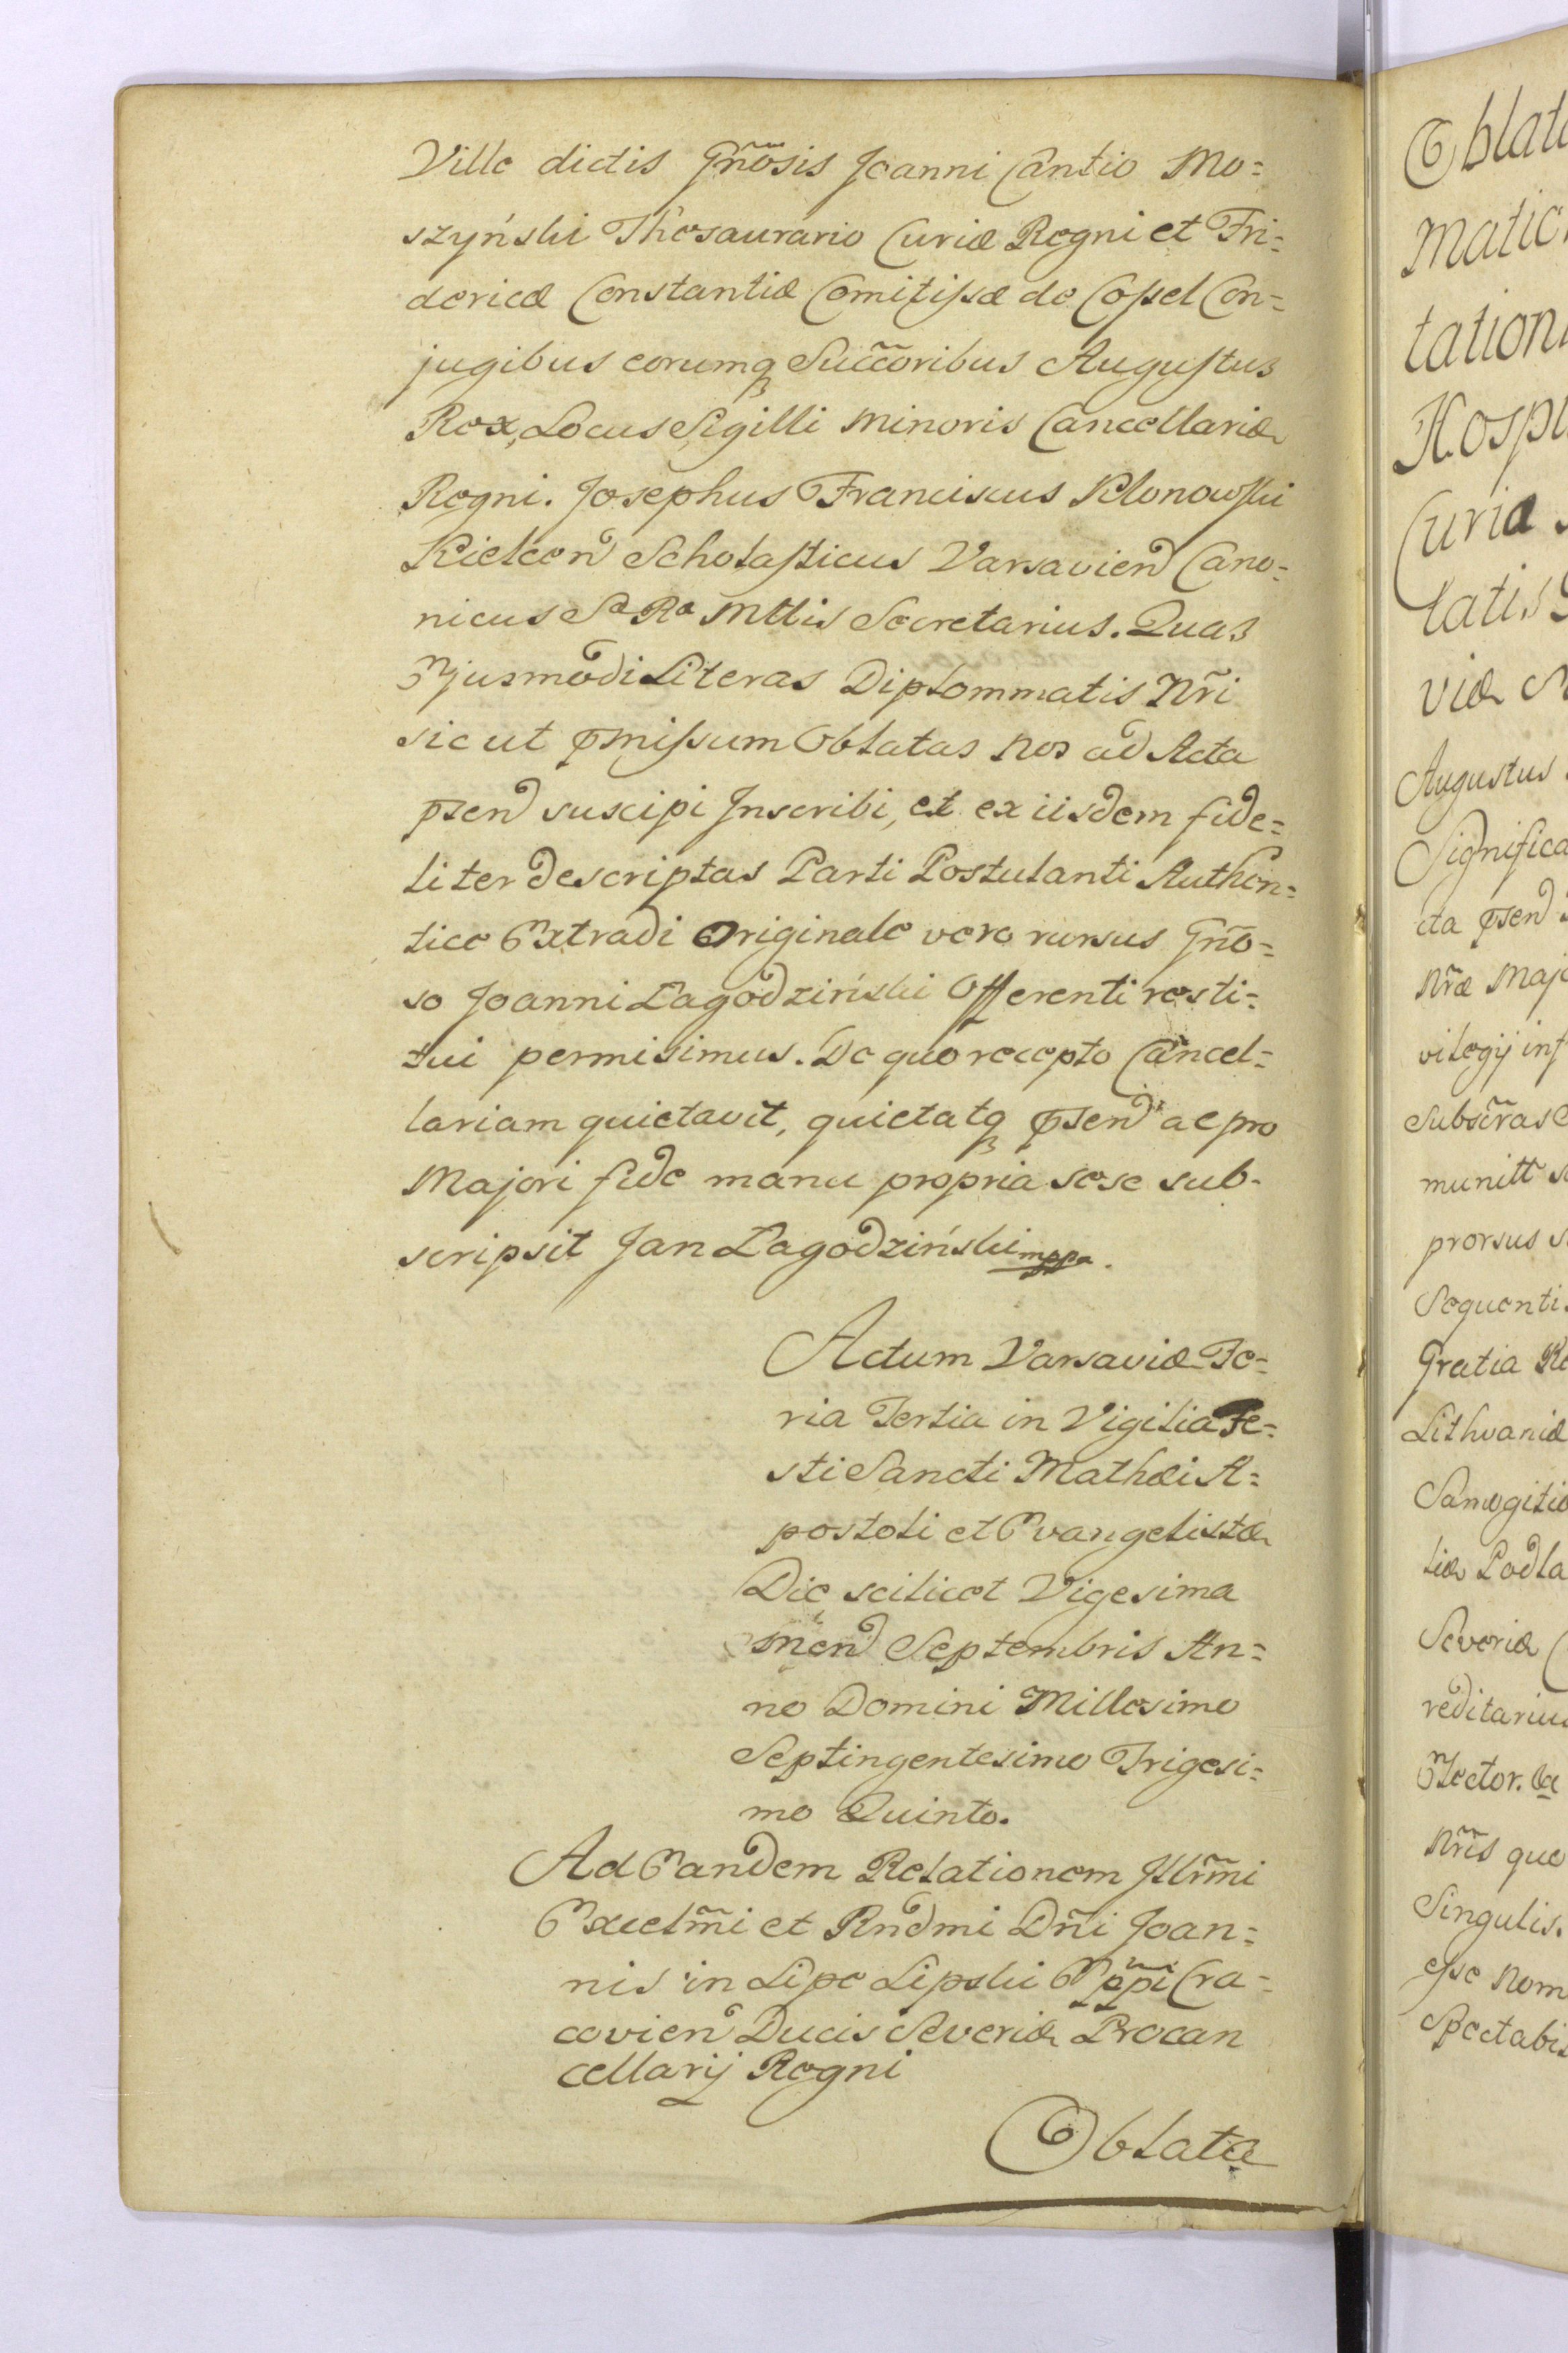 Ville dictis Gñosis Joanni Cantio Mo=
szyński Thesaurario Curiæ Regni et Fri=
dericæ Constantiæ Comitissæ de Cossel Con=
jugibus eorumq Succ̃oribus Augustus
Rex, Locus Sigilli Minoris Cancellariæ
Regni. Josephus Franciscus Klonowski
Kielcen Scholasticus Varsavien Cano=
nicus Sa Ra Mttis Secretarius. Quas
Ejusmodi Literas Diplommatis Nr̃i
sicut pmissum Oblatas Nos ad Acta
psen suscipi Inscribi, et ex iisdem fide=
liter descriptas Parti Postulanti Authen=
tice Extradi Originale vero rursus Gño=
so Joanni Łagodziński Offerenti resti=
tui permisimus. De quo recepto Cancel=
lariam quietavit, quietatq psen ac pro
Majori fide manu propria sese sub-
scripsit Jan Łagodziński mppa.
Actum Varsaviæ Fe=
ria Tertia in Vigilia Fe=
sti Sancti Mathæi A=
postoli et Evangelistæ
Die scilicet Vigesima
Men Septembris An=
no Domini Millesimo
Septingentesimo Trigesi=
mo Quinto.
Ad Eandem Relationem Illr̃mi
Excelm̃i et Rndmi Dñi Joan=
nis in Lipe Lipski Eppĩ Cra=
covien Ducis Severiæ Procan
cellarij Regni
Oblata
Oblata
Matic
tation
Hospi
Curiæ
latis
viæ
Augustus
Significa
cta psen
Nr̃æ Maje
vilegij inf
Subscr̃as
munitt
prorsus
Sequenti
Gratia Re
Lithvaniæ
Samogitiæ
liæ Podla
Severiæ
reditarius
Elector.
Nr̃is que
Singulis.
esse nom
Spectabi